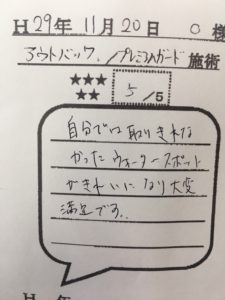 H 29年 11月 20日 ○ 様
アウトバック / プレミアムガード 施術
★★★
★★
5 /5
自分では取りきれな
かったウォータースポット
がきれいになり大変
満足です。
H 年